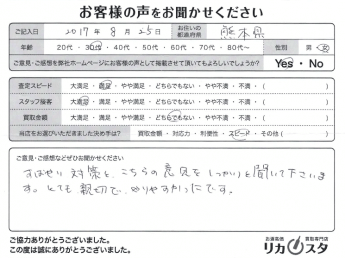 お客様の声をお聞かせください
ご記入日 2017年 8月 25日 お住いの都道府県 熊本県
年齢 20代・30代・40代・50代・60代・70代・80代〜 性別 男・女
ご意見・ご感想を弊社ホームページにお客様の声として掲載させて頂いてもよろしいでしょうか? Yes・No
査定スピード 大満足・満足・やや満足・どちらでもない・やや不満・不満・( )
スタッフ接客 大満足・満足・やや満足・どちらでもない・やや不満・不満・( )
買取金額 大満足・満足・やや満足・どちらでもない・やや不満・不満・( )
当店をお選びいただきました決め手は? 買取金額・対応力・利便性・スピード・その他( )
ご意見・ご感想などぜひお聞かせください
すばやい対応と、こちらの意見をしっかりと聞いて下さいま
す。とても親切で、やりやすかったです。
ご協力ありがとうございました。
この度は誠にありがとうございました。
お酒高価 買取専門店
リカスタ